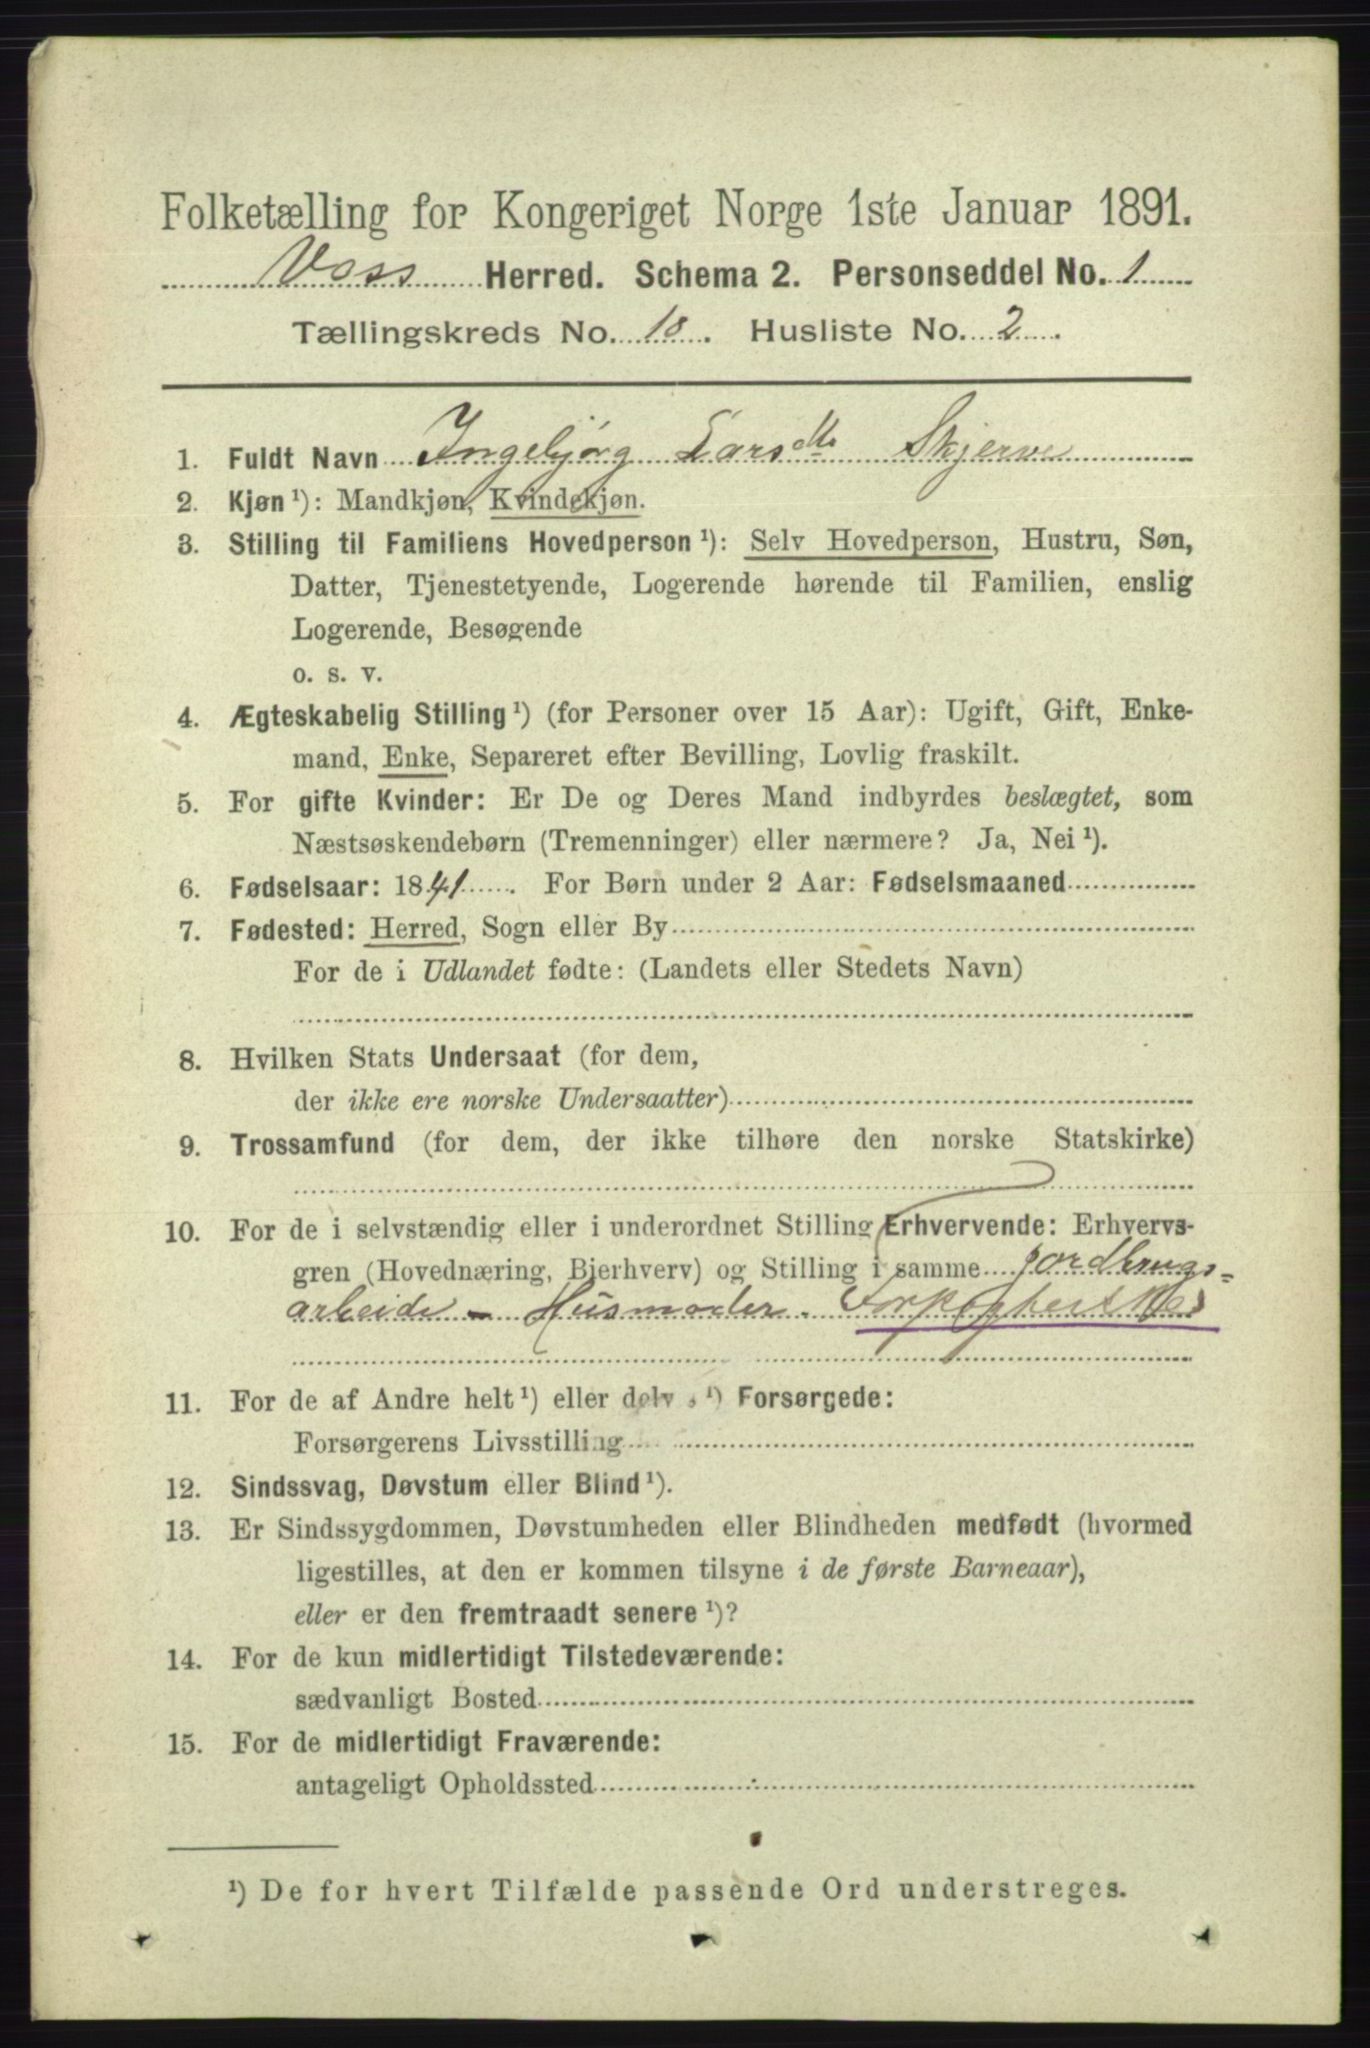 Folketælling for Kongeriget Norge 1ste Januar 1891.
Voss Herred. Schema 2. Personseddel No. 1
Tællingskreds No. 18. Husliste No. 2.
1. Fuldt Navn Ingebjørg Larsdtr Skjerve
2. Kjøn ¹): Mandkjøn, Kvindekjøn.
3. Stilling til Familiens Hovedperson ¹): Selv Hovedperson, Hustru, Søn,
Datter, Tjenestetyende, Logerende hørende til Familien, enslig
Logerende, Besøgende
o. s. v.
4. Ægteskabelig Stilling ¹) (for Personer over 15 Aar): Ugift, Gift, Enke-
mand, Enke, Separeret efter Bevilling, Lovlig fraskilt.
5. For gifte Kvinder: Er De og Deres Mand indbyrdes beslægtet, som
Næstsøskendebørn (Tremenninger) eller nærmere? Ja, Nei ¹).
6. Fødselsaar: 1841. For Børn under 2 Aar: Fødselsmaaned
7. Fødested: Herred, Sogn eller By
For de i Udlandet fødte: (Landets eller Stedets Navn)
8. Hvilken Stats Undersaat (for dem,
der ikke ere norske Undersaatter)
9. Trossamfund (for dem, der ikke tilhøre den norske Statskirke)
10. For de i selvstændig eller i underordnet Stilling Erhvervende: Erhvervs-
gren (Hovednæring, Bierhverv) og Stilling i samme Jordbrugs-
arbeide - Husmoder.
11. For de af Andre helt ¹) eller delvis ¹) Forsørgede:
Forsørgerens Livsstilling
12. Sindssvag, Døvstum eller Blind ¹).
13. Er Sindssygdommen, Døvstumheden eller Blindheden medfødt (hvormed
ligestilles, at den er kommen tilsyne i de første Barneaar),
eller er den fremtraadt senere ¹)?
14. For de kun midlertidigt Tilstedeværende:
sædvanligt Bosted
15. For de midlertidigt Fraværende:
antageligt Opholdssted
¹) De for hvert Tilfælde passende Ord understreges.